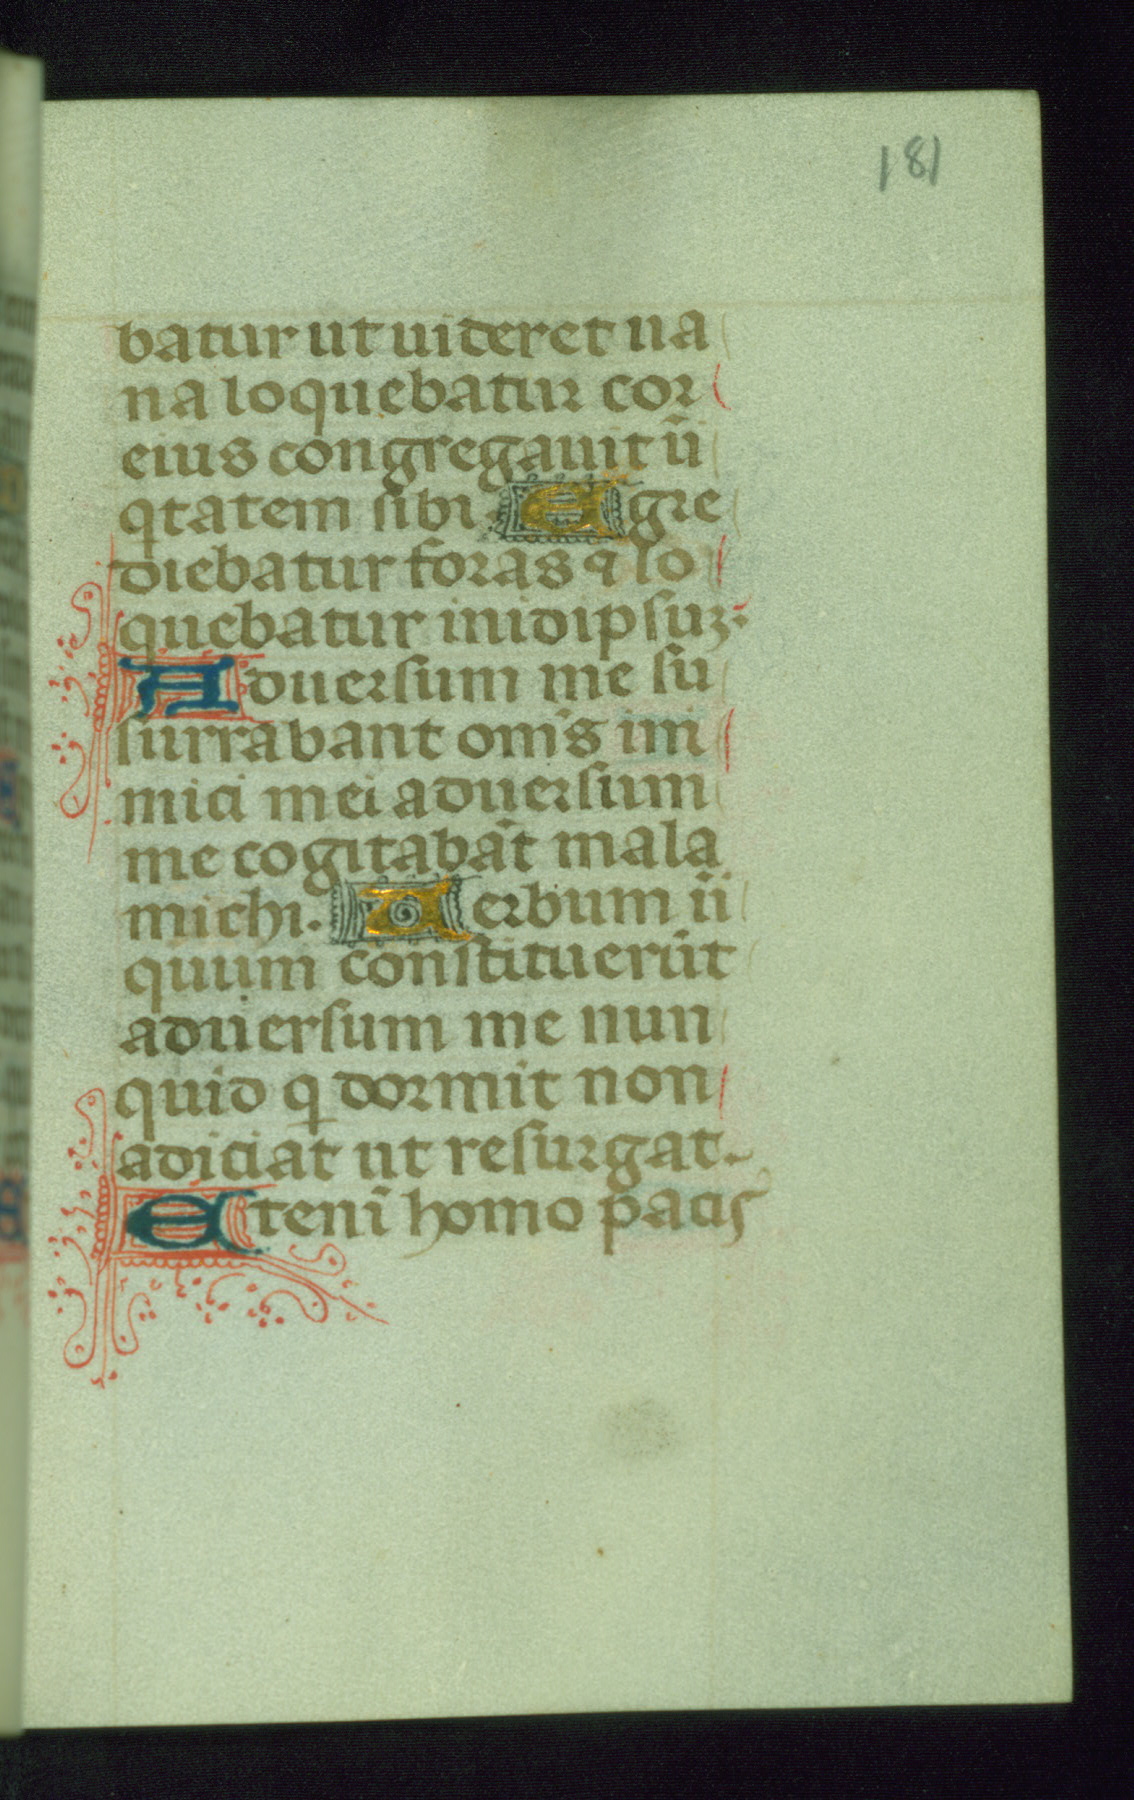 181
batur ut uideret ua
na loquebatur cor
eius congregauit ī
qtatem sibi Egre
diebatur foras ⁊ lo
quebatur inidipsuꝫ·
Aduersum me su
surrabant om̄s ini
mici mei aduersum
me cogitabāt mala
michi. Uerbum ii
quum constituerūt
aduersum me nun
quid q dormit non
adiciat ut resurgat.
Eteni̅ homo pacis